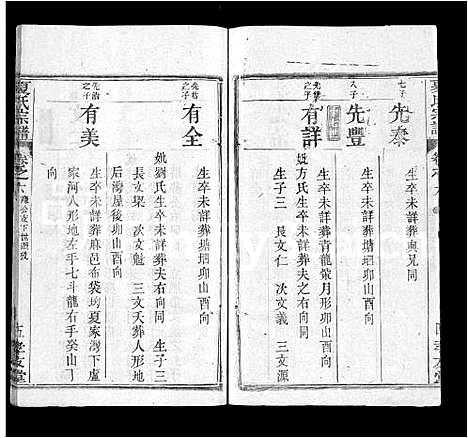 夏氏宗譜
七子
先泰
生卒未詳葬與兄同
八子
先豐
生卒未詳葬塘堌卯山酉向
之子
有詳
生卒未詳葬青龍嘴月形卯山酉向
妣方氏生卒未詳葬夫之右向同
生子三 長文仁 次文義 三文源
之子
有全
生卒未詳葬塘堌卯山酉向
妣劉氏生卒未詳葬夫右向同 生子三
長文立 次文魁 三文天葬人形地
後灣屋後卯山酉向
先治
之子
有美
生卒未詳葬麻邑布袋坳夏家灣下盧
家河人形地左手七斗龍右手癸山丁
向
夏氏宗譜
卷之六
孝友堂